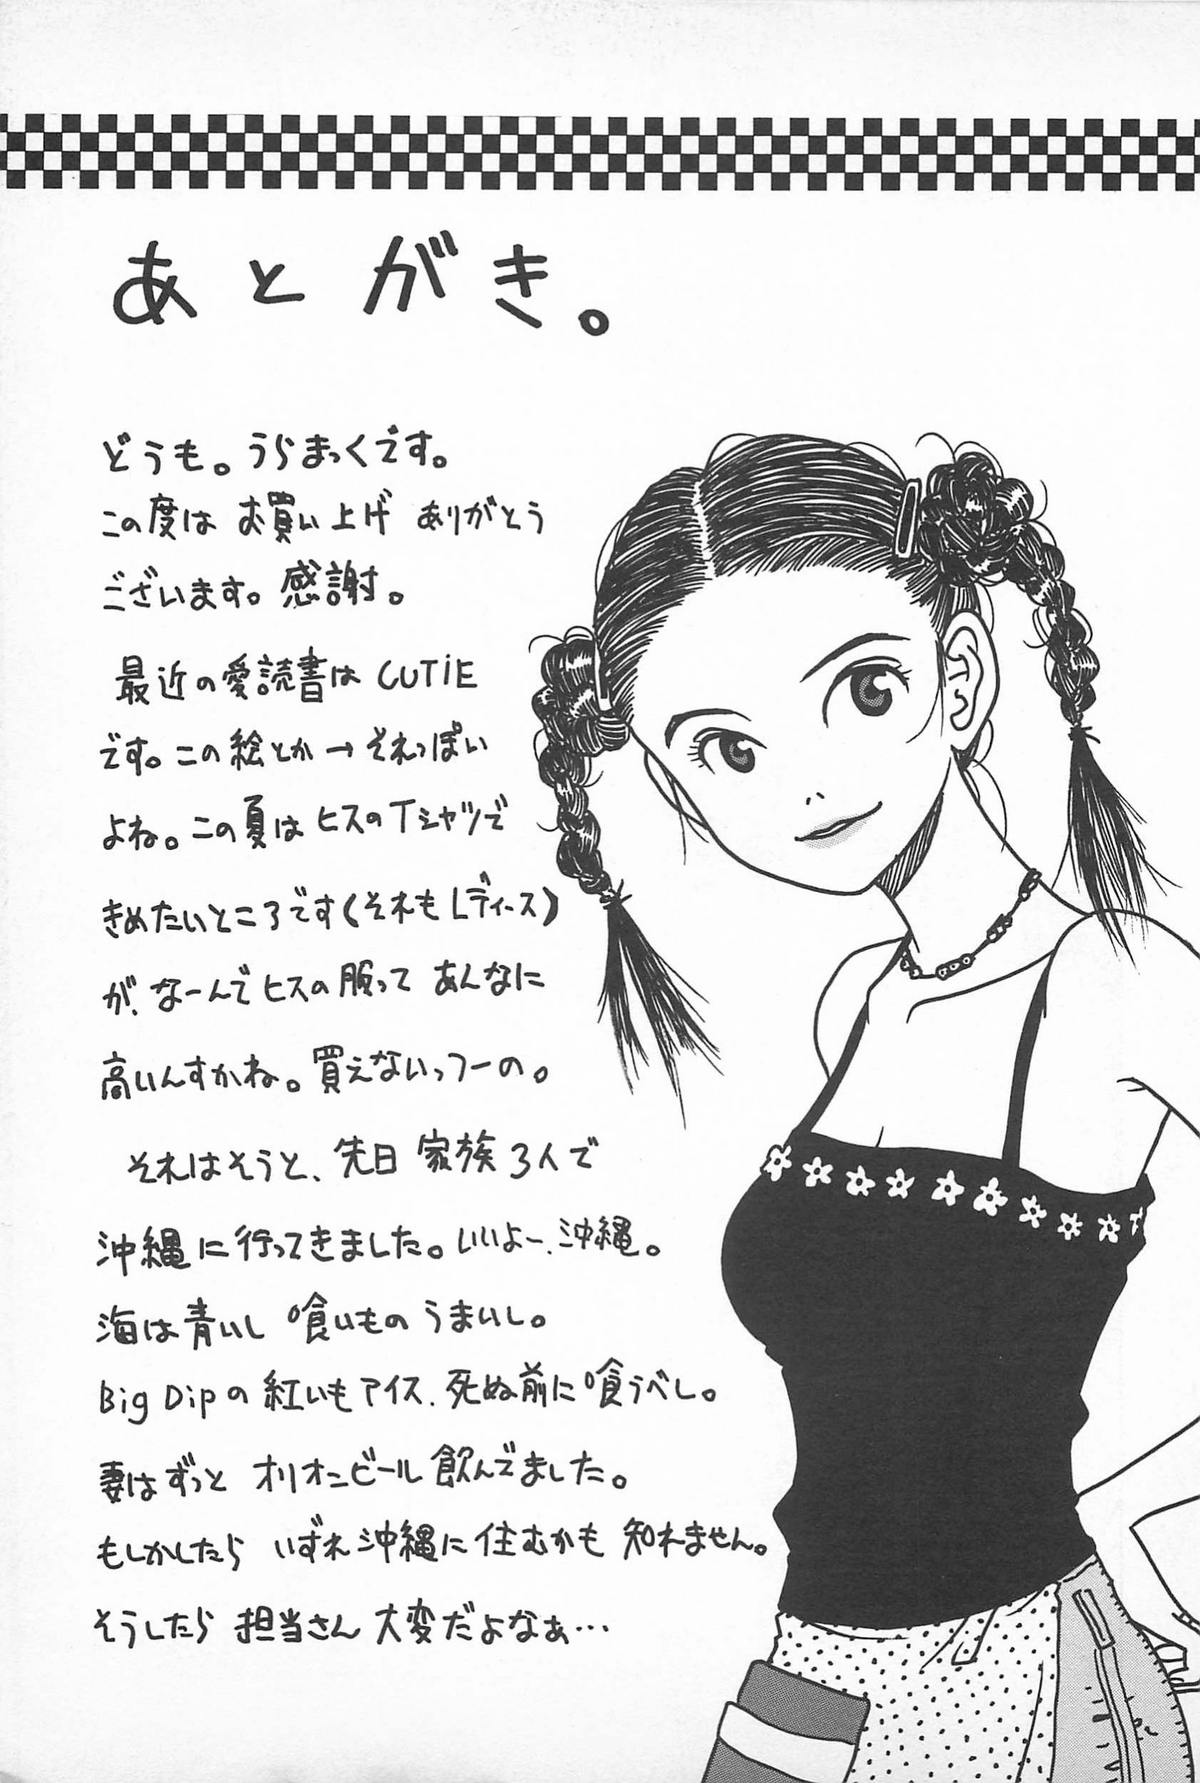 あとがき。
どうも。うらまっくです。
この度は お買い上げ ありがとう
ございます。感謝。
最近の愛読書は CUTiE
です。この絵とか→それっぽい
よね。この夏は ヒスのTシャツで
きめたいところです(それもLディース)
が、なーんでヒスの服って あんなに
高いんすかね。買えないっつーの。
それはそうと、先日 家族3人で
沖縄に行ってきました。いいよー、沖縄。
海は青いし 喰いもの うまいし。
Big Dipの 紅いもアイス、死ぬ前に喰うべし。
妻はずっと オリオンビール 飲んでました。
もしかしたら いずれ沖縄に 住むかも 知れません。
そうしたら 担当さん 大変だよなぁ…